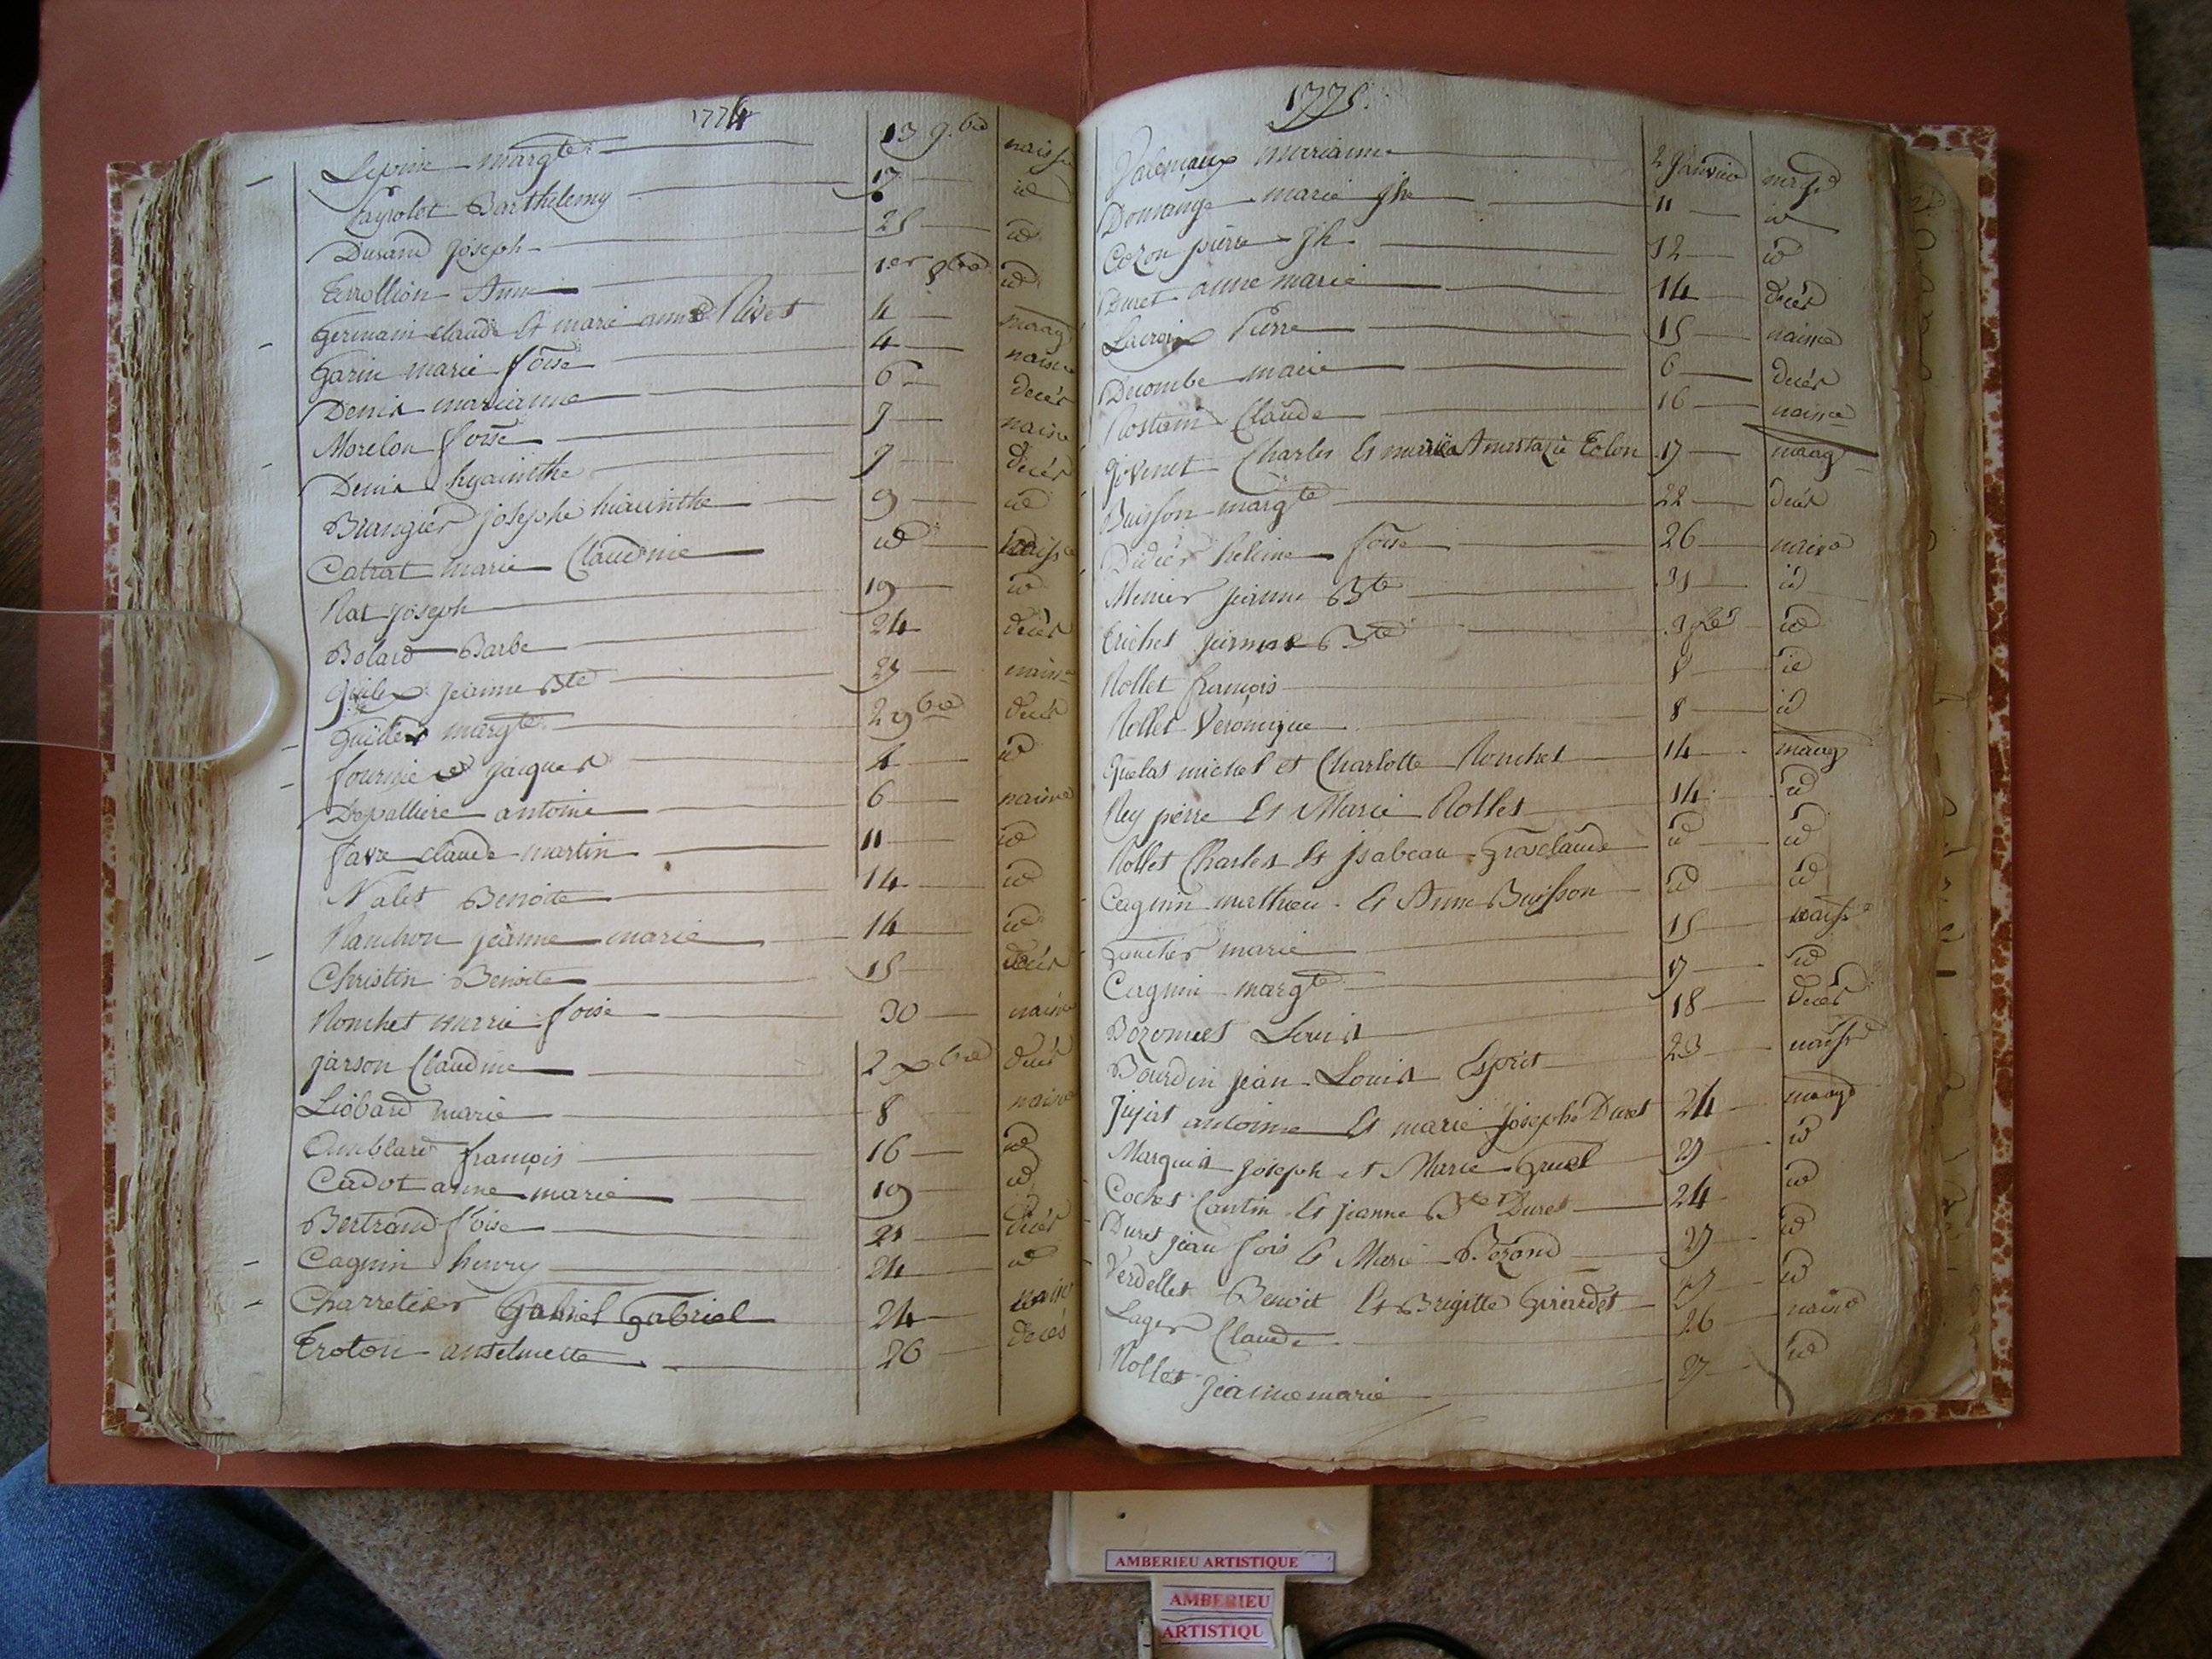 1774
Lepine margte 13 9.bre naisse
Payrolet Barthelemy 17 id
Durand joseph 25 id
Errollion Anne 1.er 8bre id
Germain claude Et marie anne Rivet 4 mariag
Garin marie foise 4 naisce
Denis marianne 6 decés
Morelon foise 7 naisce
Denis hyacinthe 7 decés
Brangier josephe hiacinthe 9 id
Catrat marie Claudine id naisse
Rat joseph 19 id
Bolard Barbe 24 decés
Guilex jeanne Bte 27 naisce
Guiller margte 2 9bre decés
fournier jacques 4 id
Depalliere antoine 6 naisce
favre claude martin 11 id
Nalet Benoite 14 id
Ranchon jeanne marie 14 id
Christin Benoite 15 decés
Ronchet marie foise 30 naisce
jarson Claudine 2 xbre decés
Liobard marie 8 naisce
Amblard françois 16 id
Cadot anne marie 19 id
Bertrand foise 21 decés
Cagnin henry 24 id
Charretier Gabriel Gabriel 24 naisce
Eroton anselmette 26 decés
1775.
marianne 2 janvier
Domange marie jhe 11 id
Cozon pierre jh 12 id
Buret anne marie 14 decés
Lacroix Pierre 15 naisce
Decombe marie 6 decés
Rostain Claude 16 naisce
jovenet Charles Et maria Anastazie Tolon 17 mariag
Buisson margte 22 decés
Didier heline foise 26 naisce
Menier jeanne Bte 31 id
Trichet jeanne Bte 3 fer id
Rollet françois 8 id
Rollet Veronique 8 id
Quelas michel et Charlotte Ronchet 14 mariag
Rey pierre Et Marie Rollet 14 id
Rollet Charles Et jsabeau Grosclaude id id
Cagnin mathieu Et Anne Buisson id id
marie 15 naisse
Cagnin margte 17 id
Bozonnet Louis 18 decés
Bourdin jean Louis Esprit 23 naisse
Jujat antoinne Et marie josephe Duret 24 mariage
Marquis joseph et Marie Gruel 27 id
Cochet Cantin Et jeanne Bte Duret 24 id
Duret jean fois Et Marie Bozond 27 id
Verdellet Benoit Et Brigitte Girardet 27 id
Lager Claude 26 naisce
Rollet jeanne marie 27 id
AMBERIEU ARTISTIQUE
AMBERIEU
ARTISTIQU